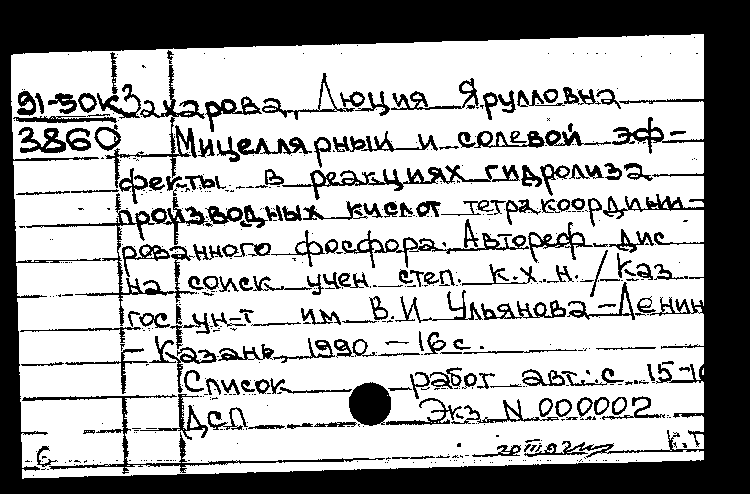 91-50К Захарова, Люция Яруллoвна
3860 Мицеллярный и солевой эф-
фекты в реакциях гидролиза
производных кислот тетракоордини-
рованного фосфора: Автореф. дис.
на соиск. учен. степ. к.х.н. / Каз.
гос. ун-т им. В.И. Ульянова-Ленин
- Казань, 1990. - 16 с.
Список работ авт.: с. 15-16
ДСП Экз. N 000002
6 К.Т